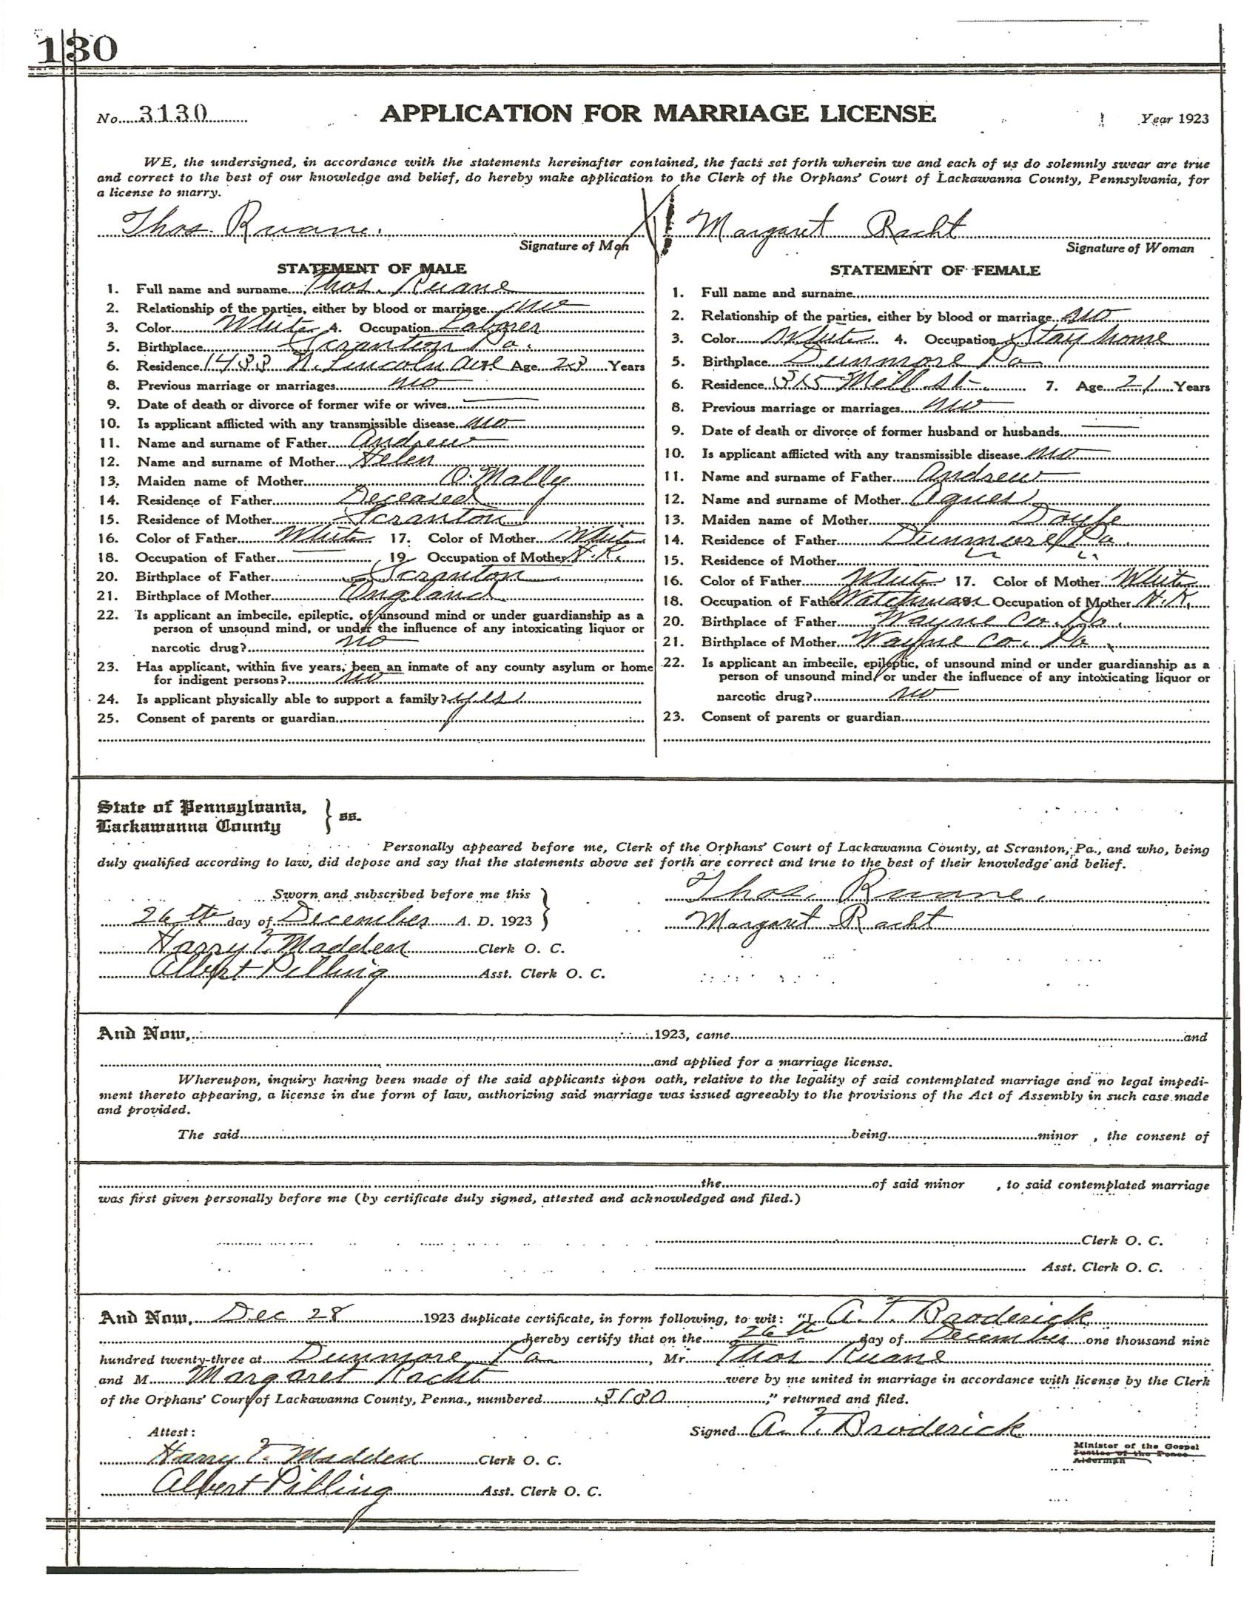 130
No. 3130 APPLICATION FOR MARRIAGE LICENSE Year 1923
WE, the undersigned, in accordance with the statements hereinafter contained, the facts set forth wherein we and each of us do solemnly swear are true
and correct to the best of our knowledge and belief, do hereby make application to the Clerk of the Orphans' Court of Lackawanna County, Pennsylvania, for
a license to marry.
Thos. Ruane. Margaret Racht
Signature of Man Signature of Woman
STATEMENT OF MALE
1. Full name and surname Thos. Ruane
2. Relationship of the parties, either by blood or marriage. no
3. Color White 4. Occupation Laborer
5. Birthplace Scranton Pa.
6. Residence 1433 N. Lincoln Ave Age 23 Years
8. Previous marriage or marriages no
9. Date of death or divorce of former wife or wives
10. Is applicant afflicted with any transmissible disease no
11. Name and surname of Father Andrew
12. Name and surname of Mother Helen
13. Maiden name of Mother O'Mally
14. Residence of Father Deceased
15. Residence of Mother Scranton
16. Color of Father White 17. Color of Mother White
18. Occupation of Father 19 Occupation of Mother H.K.
20. Birthplace of Father Scranton
21. Birthplace of Mother England
22. Is applicant an imbecile, epileptic, of unsound mind or under guardianship as a
person of unsound mind, or under the influence of any intoxicating liquor or
narcotic drug? no
23. Has applicant, within five years, been an inmate of any county asylum or home
for indigent persons? no
24. Is applicant physically able to support a family? yes
25. Consent of parents or guardian
STATEMENT OF FEMALE
1. Full name and surname
2. Relationship of the parties, either by blood or marriage no
3. Color White 4. Occupation Stay home
5. Birthplace Dunmore Pa
6. Residence 315 Mill St. 7. Age 21 Years
8. Previous marriage or marriages no
9. Date of death or divorce of former husband or husbands
10. Is applicant afflicted with any transmissible disease. no
11. Name and surname of Father Andrew
12. Name and surname of Mother Agnes
13. Maiden name of Mother Doyle
14. Residence of Father Dunmore Pa.
15. Residence of Mother " "
16. Color of Father White 17. Color of Mother White
18. Occupation of Father Watchman Occupation of Mother H.K.
20. Birthplace of Father Wayne Co. Pa.
21. Birthplace of Mother Wayne Co. Pa
22. Is applicant an imbecile, epileptic, of unsound mind or under guardianship as a
person of unsound mind or under the influence of any intoxicating liquor or
narcotic drug? no
23. Consent of parents or guardian
State of Pennsylvania,
Lackawanna County } ss.
Personally appeared before me, Clerk of the Orphans' Court of Lackawanna County, at Scranton, Pa., and who, being
duly qualified according to law, did depose and say that the statements above set forth are correct and true to the best of their knowledge and belief.
Sworn and subscribed before me this Thos. Ruane.
26th day of December A. D. 1923 } Margaret Racht
Harry F. Madden Clerk O. C.
Albert Pilling Asst. Clerk O. C.
And Now, 1923, came and
and applied for a marriage license.
Whereupon, inquiry having been made of the said applicants upon oath, relative to the legality of said contemplated marriage and no legal impedi-
ment thereto appearing, a license in due form of law, authorizing said marriage was issued agreeably to the provisions of the Act of Assembly in such case made
and provided.
The said being minor , the consent of
the of said minor , to said contemplated marriage
was first given personally before me (by certificate duly signed, attested and acknowledged and filed.)
Clerk O. C.
Asst. Clerk O. C.
And Now, Dec 28 1923 duplicate certificate, in form following, to wit: "I, A. F. Broderick
hereby certify that on the 26th day of December one thousand nine
hundred twenty-three at Dunmore Pa , Mr Thos Ruane
and M Margaret Racht were by me united in marriage in accordance with license by the Clerk
of the Orphans' Court of Lackawanna County, Penna., numbered 3130 ," returned and filed.
Attest: Signed A. F. Broderick
Harry F. Madden Clerk O. C. Minister of the Gospel
Justice of the Peace
Alderman
Albert Pilling Asst. Clerk O. C.